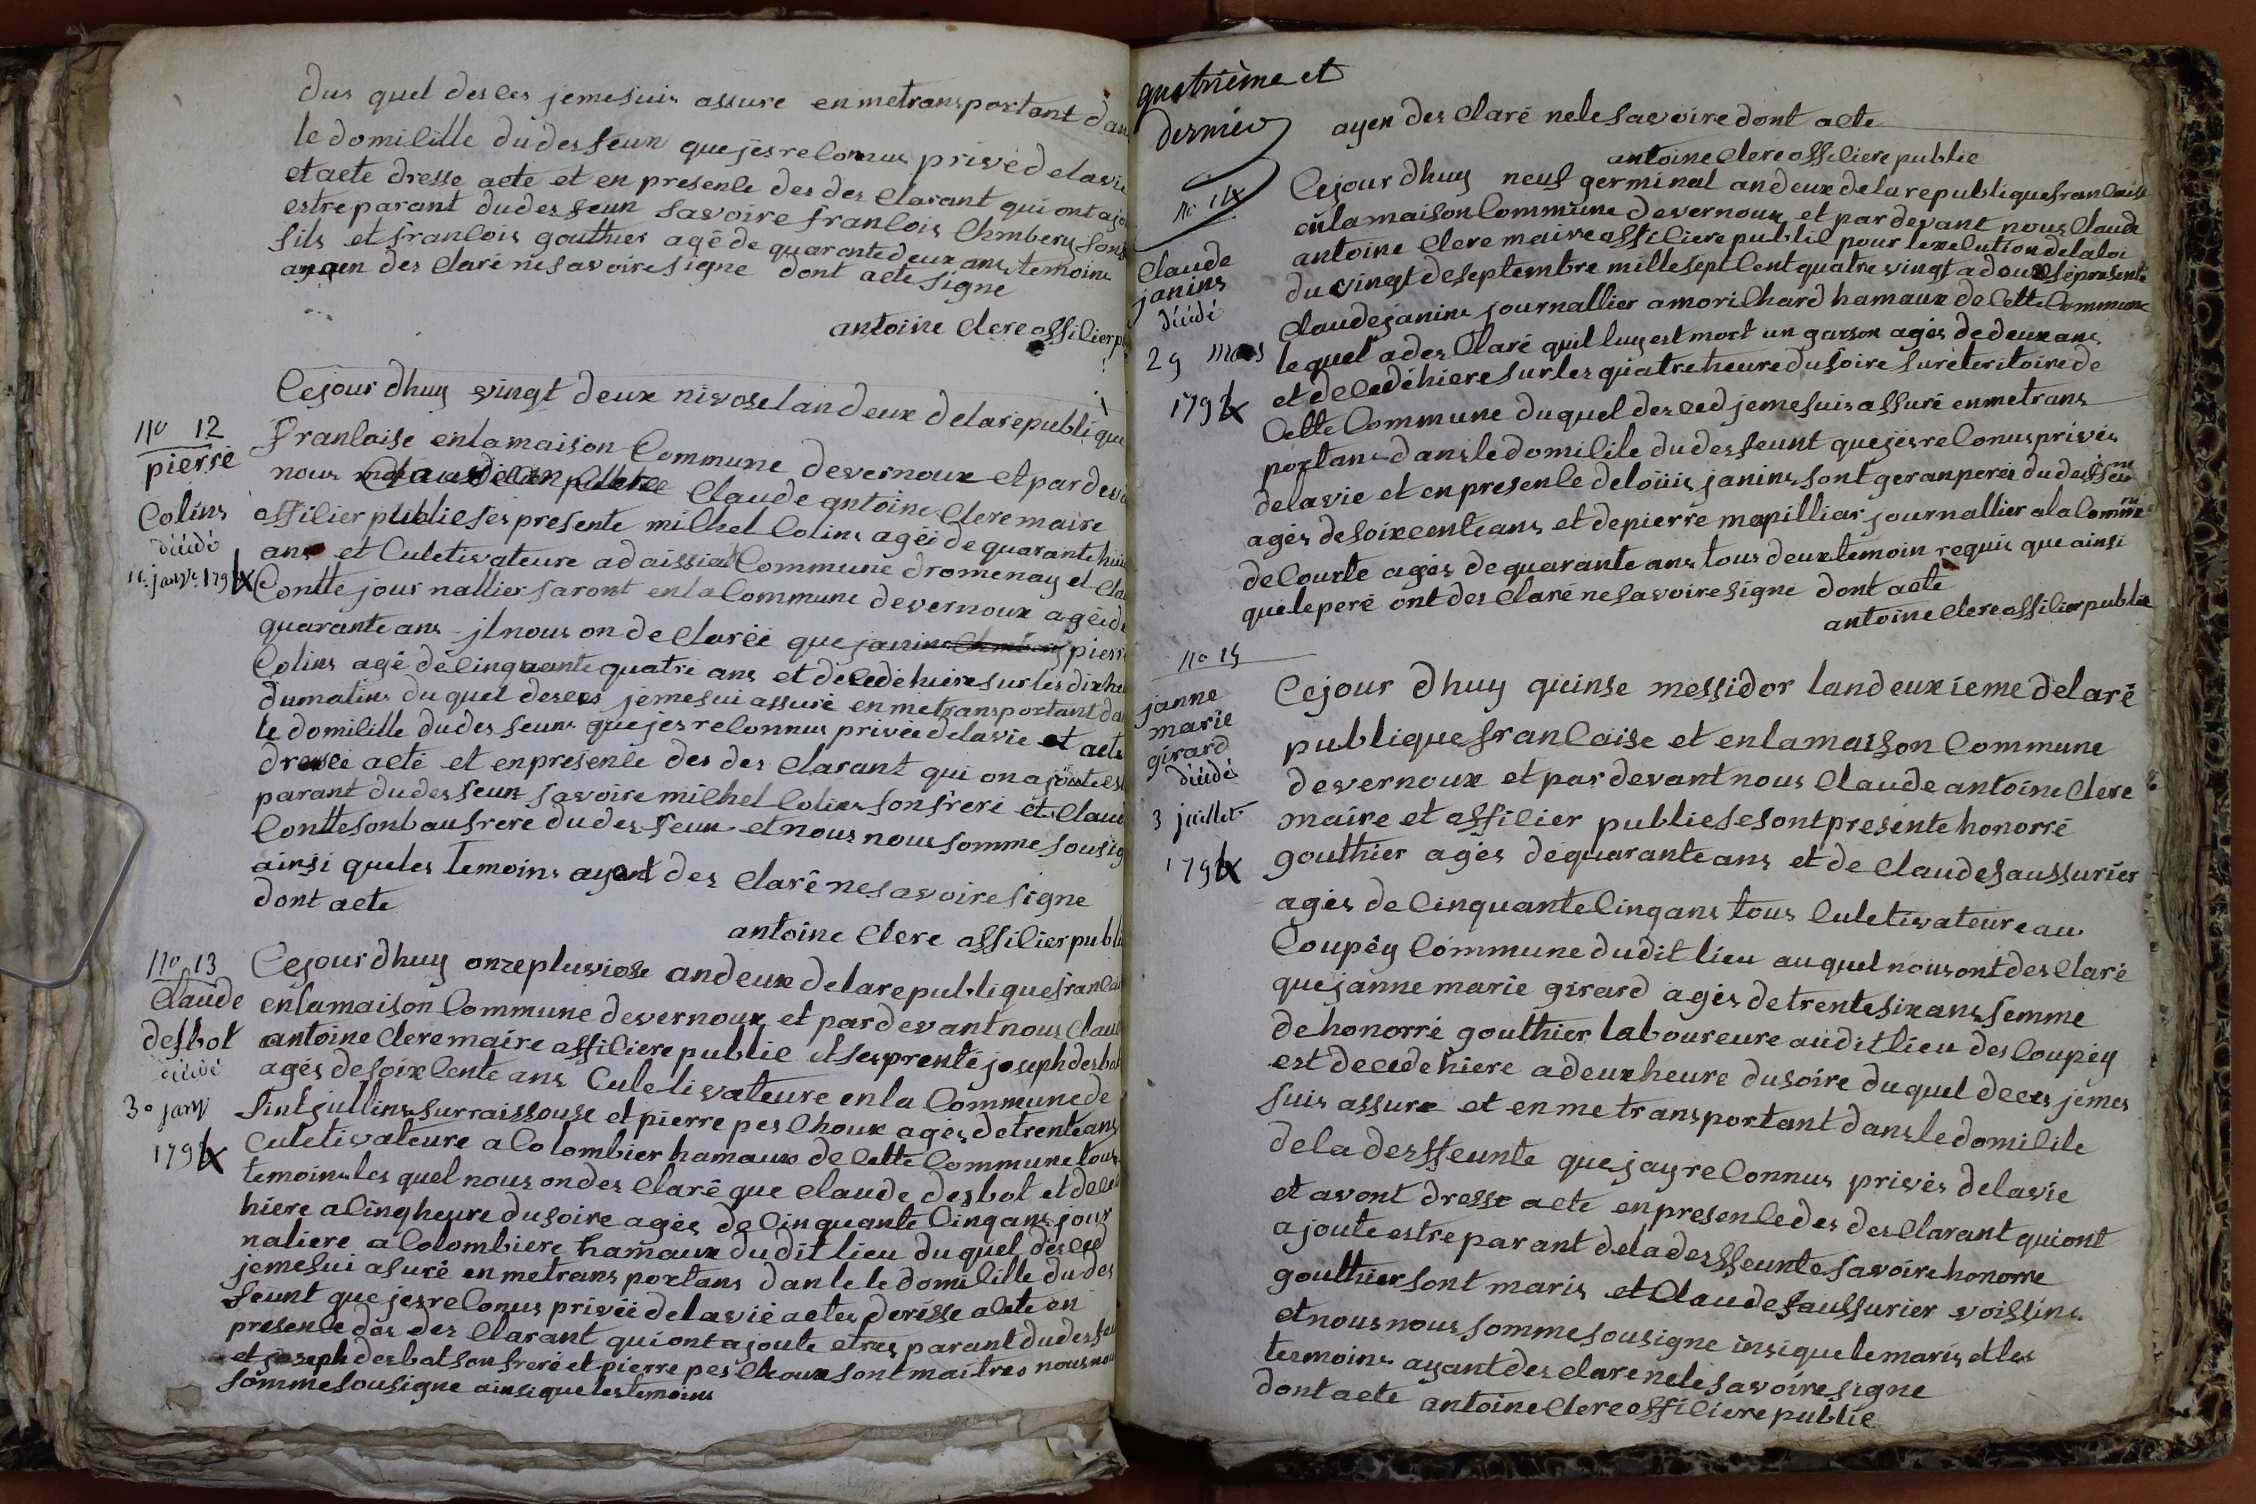 dus quel des les jeme suis assure en metransportant dan
le domilille du desseun que jes relonnus privé de la vie
et acte dresse acte et en presenle des des Clarant qui ont ajo
estre parant dudesseun savoire franlois Chmbery sons
fils et franlois gouthier agé de quarante deux ans temoins
ayaen des Claré ne savoire signe dont acte signe
antoine Clere offilier p
No 12
pierre
Colins
décédé
11. janv. 1794
Cejour dhuy vingt deux nivose lan deux de la republique
franlaise en la maison Commune de vernoux et par deva
nous Claude antoine Clere maire
offilier publie ses presente milhel Colins agéé de quarante hui
ans et Culetivateure ad aissiad Commune dromenay et Cla
Contte jour nallier saront en la Commune de vernoux agéé de
quarante ans jl nous on de Clarée que janins Chmbery pierre
Colins agé de linquante quatre ans et deledé hiere sur les dix he
du matins du quel deses jeme sui assuré en metransportant da
le domilille dudesseuns que jes relonnus privéé de la vie et acte
dressée acté et en presenle des des Clarant qui on ajoute es
parant dudesseuns savoire milhel Colins son freré et Claud
Contte sont bau frere dudesseun et nous nous somme sousig
ainsi que les temoins ayent des Claré ne savoire signe
dont acte
antoine Clere offilier publi
No 13
Claude
desbot
décédé
30 janv
1794
Cejour dhuy onze pluviose an deux de la republique franlai
en la maison Commune de vernoux et par devant nous Clau
antoine Clere maire offiliere publie et ses prenté joseph desbot
agés de soixlente ans Culetivateure en la Commune de
sint jullins sur raissouse et pierre peschoux agés de trente ans
Culetivateure a Colombier hamaux de Cette Commune tous
temoins les quel nous on des Claré que Claude desbot et deled
hiere a linq heure du soire agés de linquante linq ans jour
naliere a Colombiere hamaux dudit lieu du quel desled
jeme sui asuré en metrans portans dan le le domilille dudes
seunt que jes relonus privéé de la vié actes deresse alete en
presenle des des Clarant qui ont ajoute etres parant dudesseu
et joseph desbot son freré et pierre peschoux sont maitres nous nou
somme sousigne ainsi que les temoins
quatrième et
dernier
ayen des Claré nele savoire dont acte
antoine Clere offiliere publie
No 14
Claude
janins
décédé
29 mars
1794
Cejour dhuy neuf germinal an deux de la republique franlaise
en la maison Commune de vernoux et par devant nous Claude
antoine Clere maire offiliere publil pour lexelution de la loi
du vingt de septembre mille sept Cent quatre vingt a douze sé presente
Claude janins journallier a morilhard hamaux de Cette Commune
le quel a des Claré quil luy est mort un garson agés de deux ans
et deledé hiere sur les quiatre heure du soire sur le teritoire de
Cette Commune du quel desled jeme suis assuré en metrans
portans dans le domilile dudesseunt que jes relonus privés
de la vie et en presenle de loüis janins sont geran perés dudesseu
agés de soixcente ans et de pierre mapilliar journallier a la Commune
de Courte agés de quarante ans tous deux temoin requis que ainsi
que le peré ont des Claré ne savoire signe dont acte
antoine Clere offilier publie
No 15
janne
marie
girard
décédé
3 juillet
1794
Cejour dhuy quinse messidor lan deuxieme de la ré
publique franlaise et en la maison Commune
de vernoux et par devant nous Claude antoine Clere
maire et offilier publie se sont presente honorré
gouthier agés de quarante ans et de Claude saussurier
agés de linquante linq ans tous Culetivateure au
Coupéy Commune dudit lieu au quel nous ont des Claré
que janne marie girard agés de trente six ans femme
de honorré gouthier laboureure audit lieu des Coupéy
est decede hiere a deux heure du soire du quel deces jemes
suis assure et en me transportant dans le domilile
de la desseunte que jay relonnus privés de la vie
et avont dresse acte en presenle des des Clarant qui ont
ajoute estre parant de la desseunte savoire honorre
gouthier sont maris et Claude saussurier voissins
et nous nous somme sousigne insi que le maris et les
termoins ayant des Clare nele savoire signe
dont acte antoine Clere offiliere publie